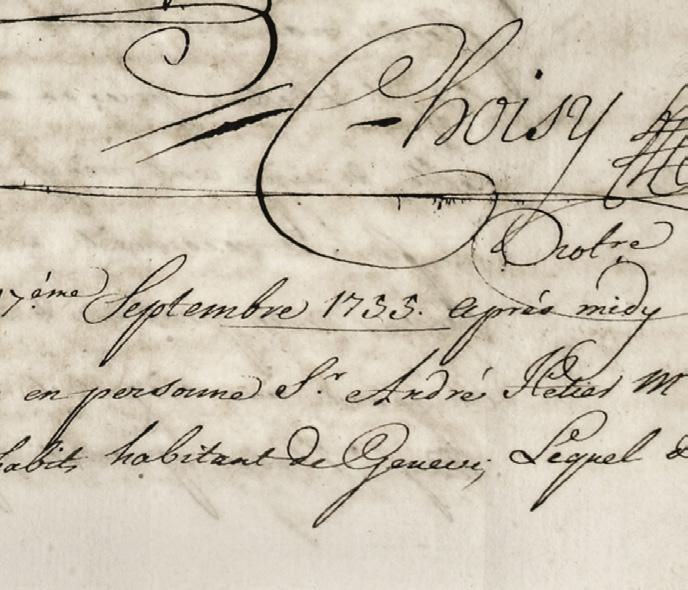 Choisy
Notre
17.éme Septembre 1755. aprés midy
en personne S.r André
habits habitant de Geneve; Lequel